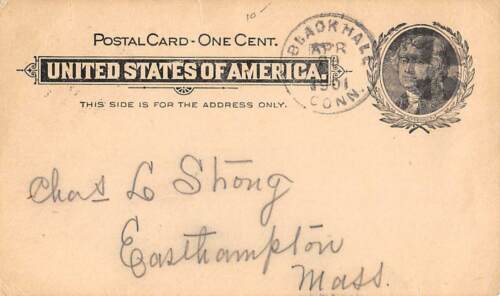 10-
POSTAL CARD - ONE CENT.
UNITED STATES OF AMERICA.
THIS SIDE IS FOR THE ADDRESS ONLY.
BLACKHALL
APR
1901
CONN.
Chas L Strong
Easthampton
Mass.